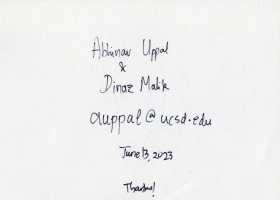 Abhinav Uppal
&
Dinaz Malik
auppal@ucsd.edu
June 13, 2023
Thanks!